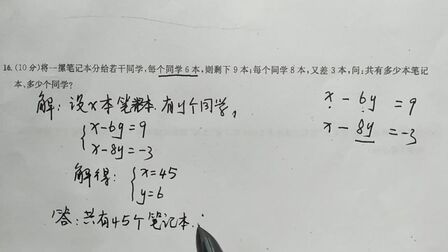 16.(10分)将一摞笔记本分给若干同学,每个同学6本,则剩下9本;每个同学8本,又差3本,问:共有多少本笔记
本、多少个同学?
解:设x本笔记本.有y个同学,
x-6y=9
x-8y=-3
解得:
x=45
y=6
答:共有45个笔记本.
x-6y=9
x-8y=-3